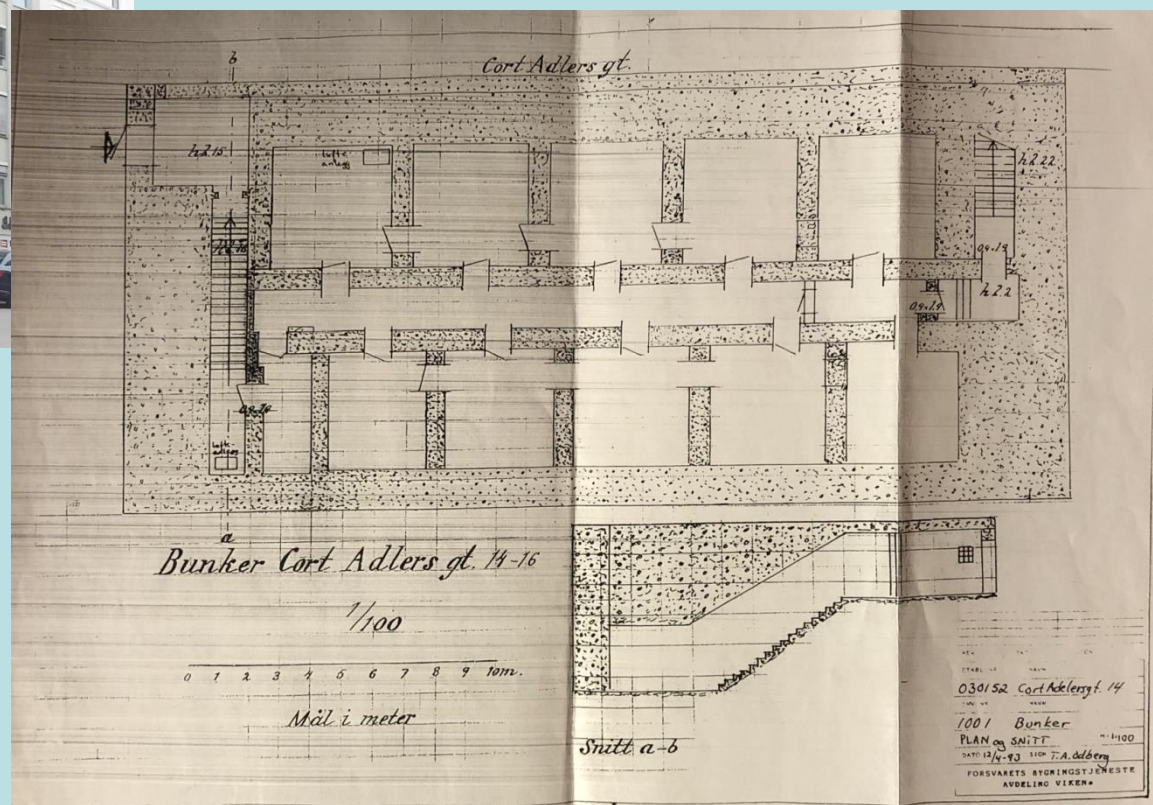 Cort Adlers gt.
b
h 2.15
lufte
anlegg
h 2.22
0,9-1,9
h 2.2
0,9-1,9
0,9-1,9
lufte
anlegg
a
Bunker Cort Adlers gt. 14-16
1/100
0 1 2 3 4 5 6 7 8 9 10m.
Mål i meter
Snitt a-b
ETABL. NR NAVN
030152 Cort Adelersgt. 14
NAVN
1001 Bunker
PLAN og SNITT M. 1:100
DATO 12/4-93 SIGN T.A. Ødberg
FORSVARETS BYGNINGSTJENESTE
AVDELING VIKEN